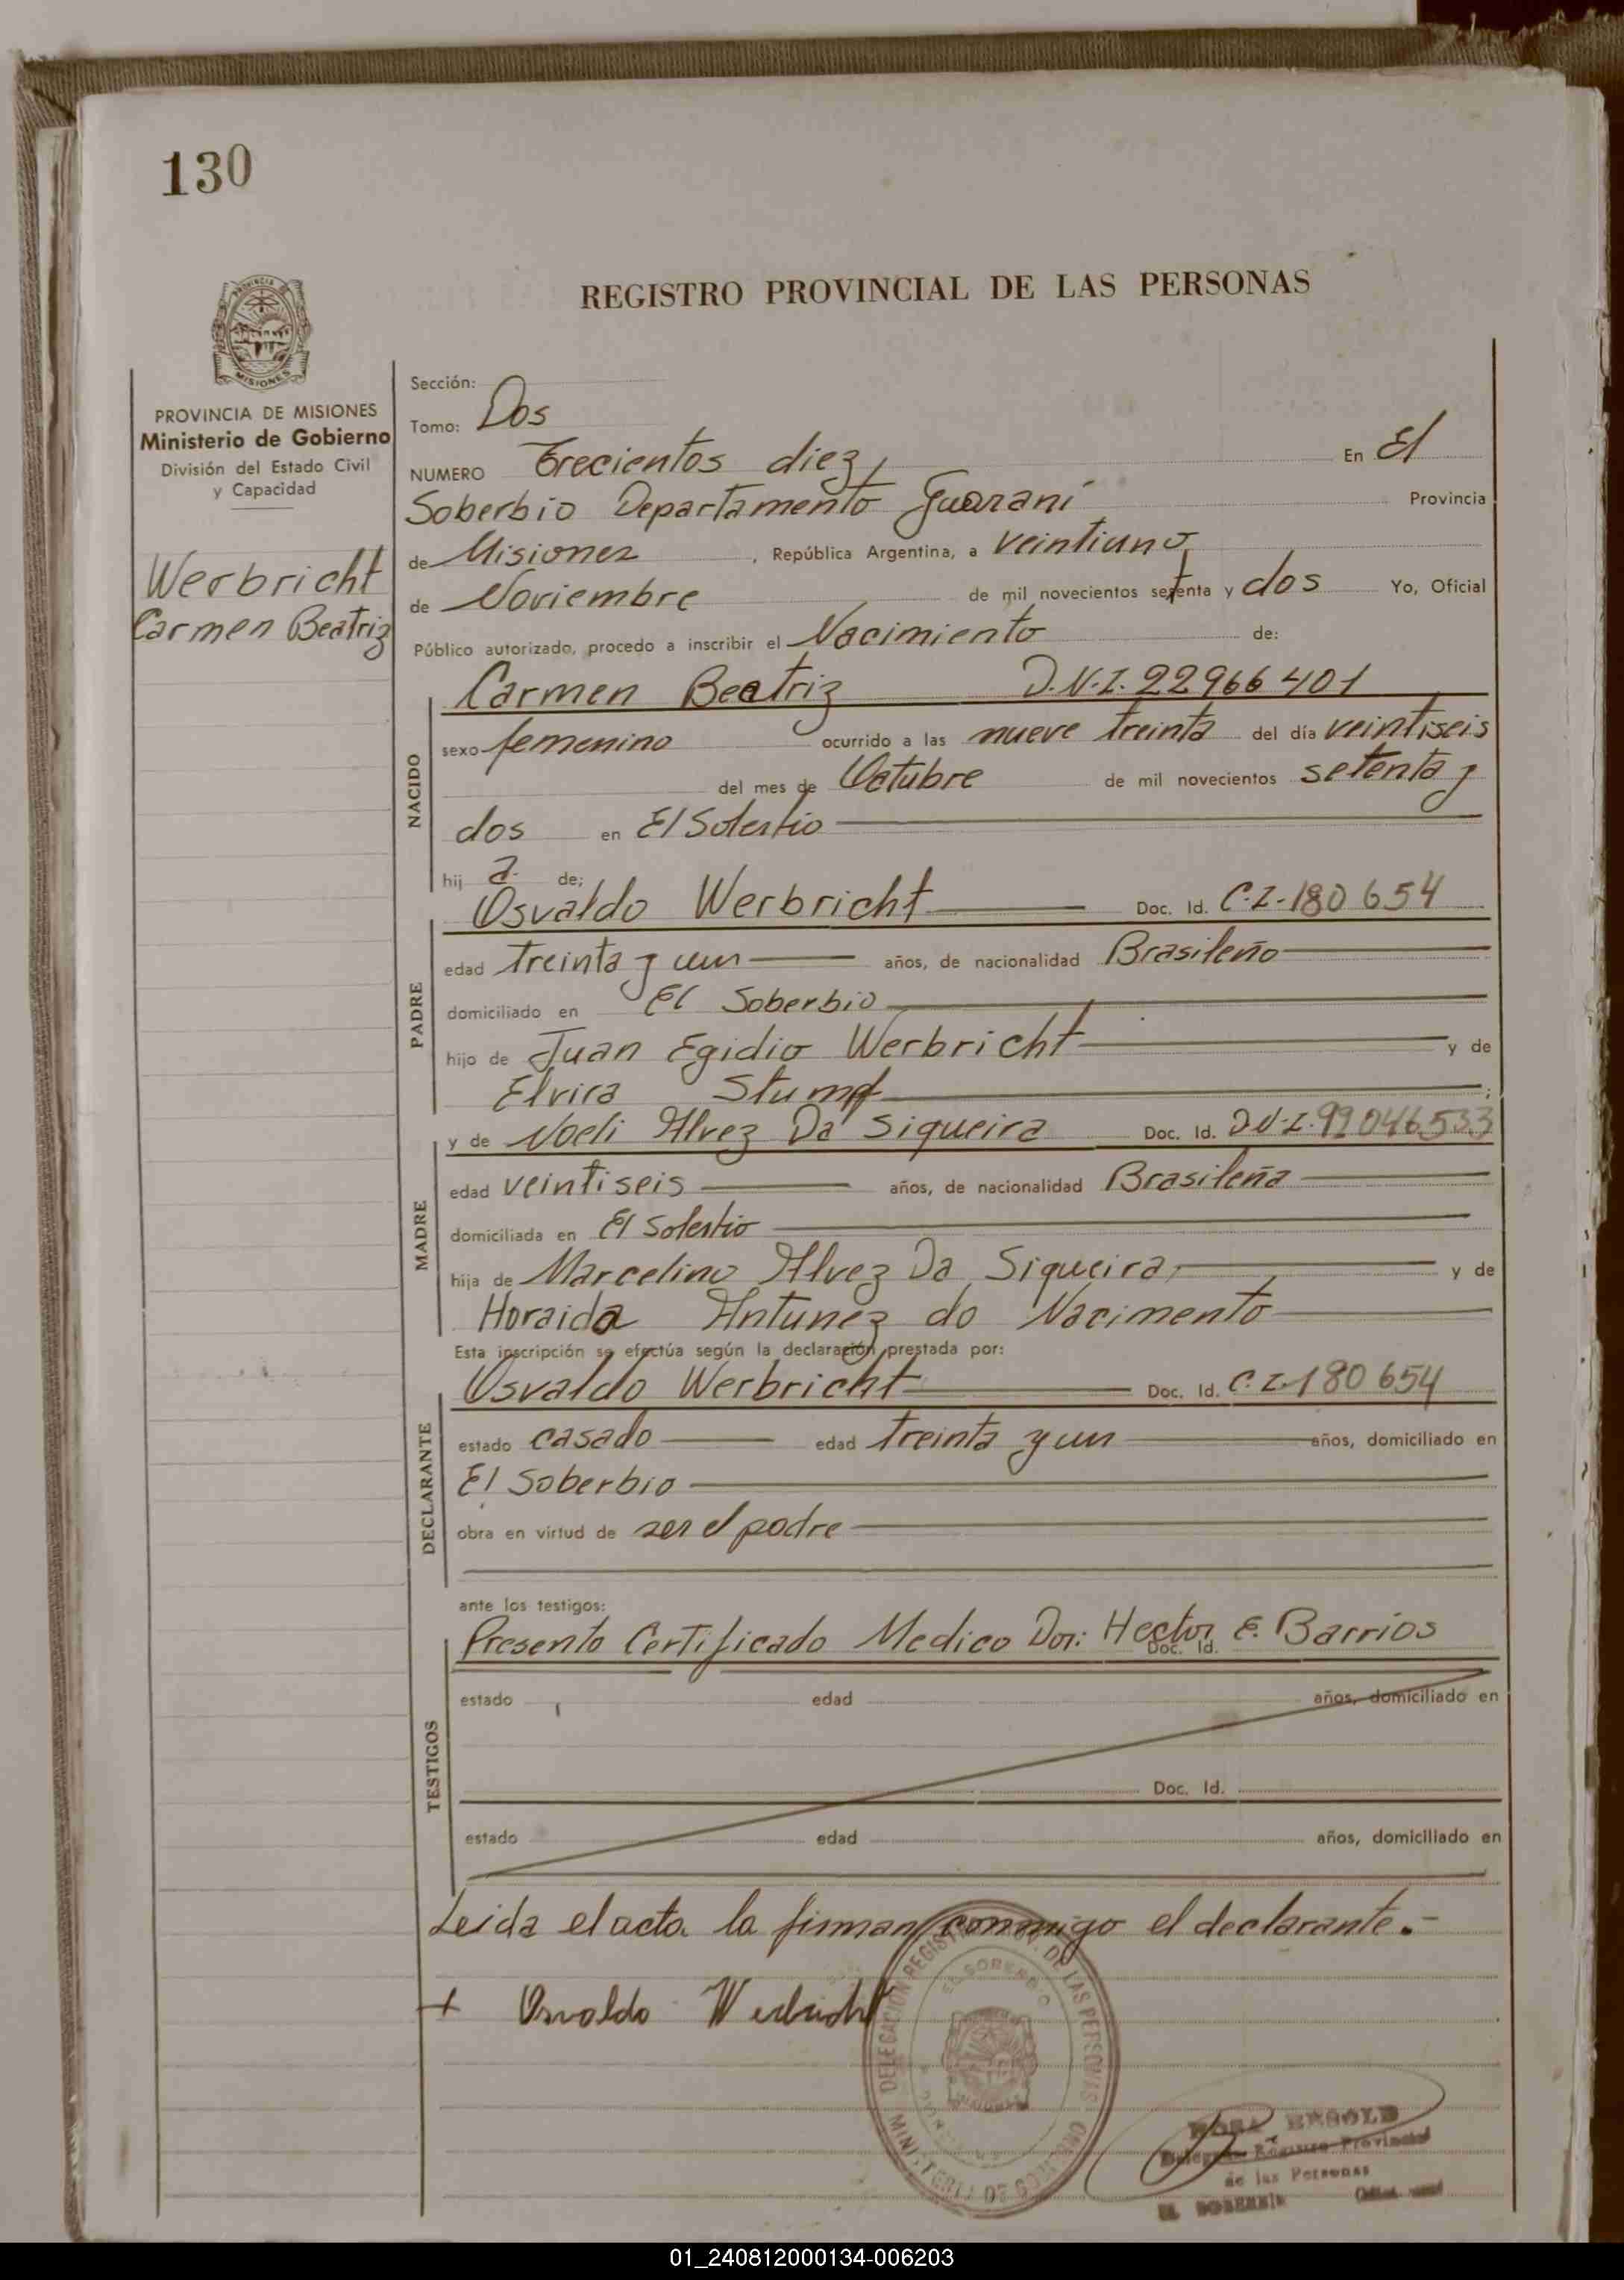 130
REGISTRO PROVINCIAL DE LAS PERSONAS
PROVINCIA DE MISIONES
Ministerio de Gobierno
División del Estado Civil
y Capacidad
Werbricht
Carmen Beatriz
Sección:
Tomo: Dos
NUMERO Trecientos diez, En El
Soberbio Departamento Guaraní Provincia
de Misiones, República Argentina, a veintiuno
de Noviembre de mil novecientos setenta y dos Yo, Oficial
Público autorizado, procedo a inscribir el Nacimiento de:
NACIDO
Carmen Beatriz D.N.I. 22966401
sexo femenino ocurrido a las nueve treinta del día veintiseis
del mes de Octubre de mil novecientos setenta y
dos en El Soberbio
hij a. de;
PADRE
Osvaldo Werbricht Doc. Id. C.I-180654
edad treinta y un años, de nacionalidad Brasileño
domiciliado en El Soberbio
hijo de Juan Egidio Werbricht y de
Elvira Stumpf;
MADRE
y de Noeli Alvez Da Siqueira Doc. Id. D.N.I.99046533
edad veintiseis años, de nacionalidad Brasileña
domiciliada en El Soberbio
hija de Marcelino Alvez Da Siqueira, y de
Horaida Antunez do Nacimento
Esta inscripción se efectúa según la declaración prestada por:
DECLARANTE
Osvaldo Werbricht Doc. Id. C.I-180654
estado casado edad treinta y un años, domiciliado en
El Soberbio
obra en virtud de ser el padre
ante los testigos:
TESTIGOS
Presento Certificado Medico Dor: Hector E. Barrios
Doc. Id.
estado edad años, domiciliado en
Doc. Id.
estado edad años, domiciliado en
Leida el acta la firman conmigo el declarante.-
+ Osvaldo Werbricht
DELEGACION REGISTRO PROV. DE LAS PERSONAS
EL SOBERBIO
MINISTERIO DE GOBIERNO
MISIONES
Registro Provincial
de las Personas
EL SOBERBIO
01_240812000134-006203